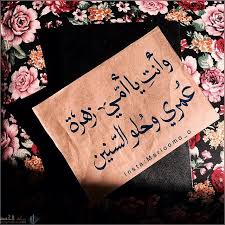 وأنتِ يا أمّي~ زهرة
عُمري وحُلو السّنين
Insta:Msriooma_o